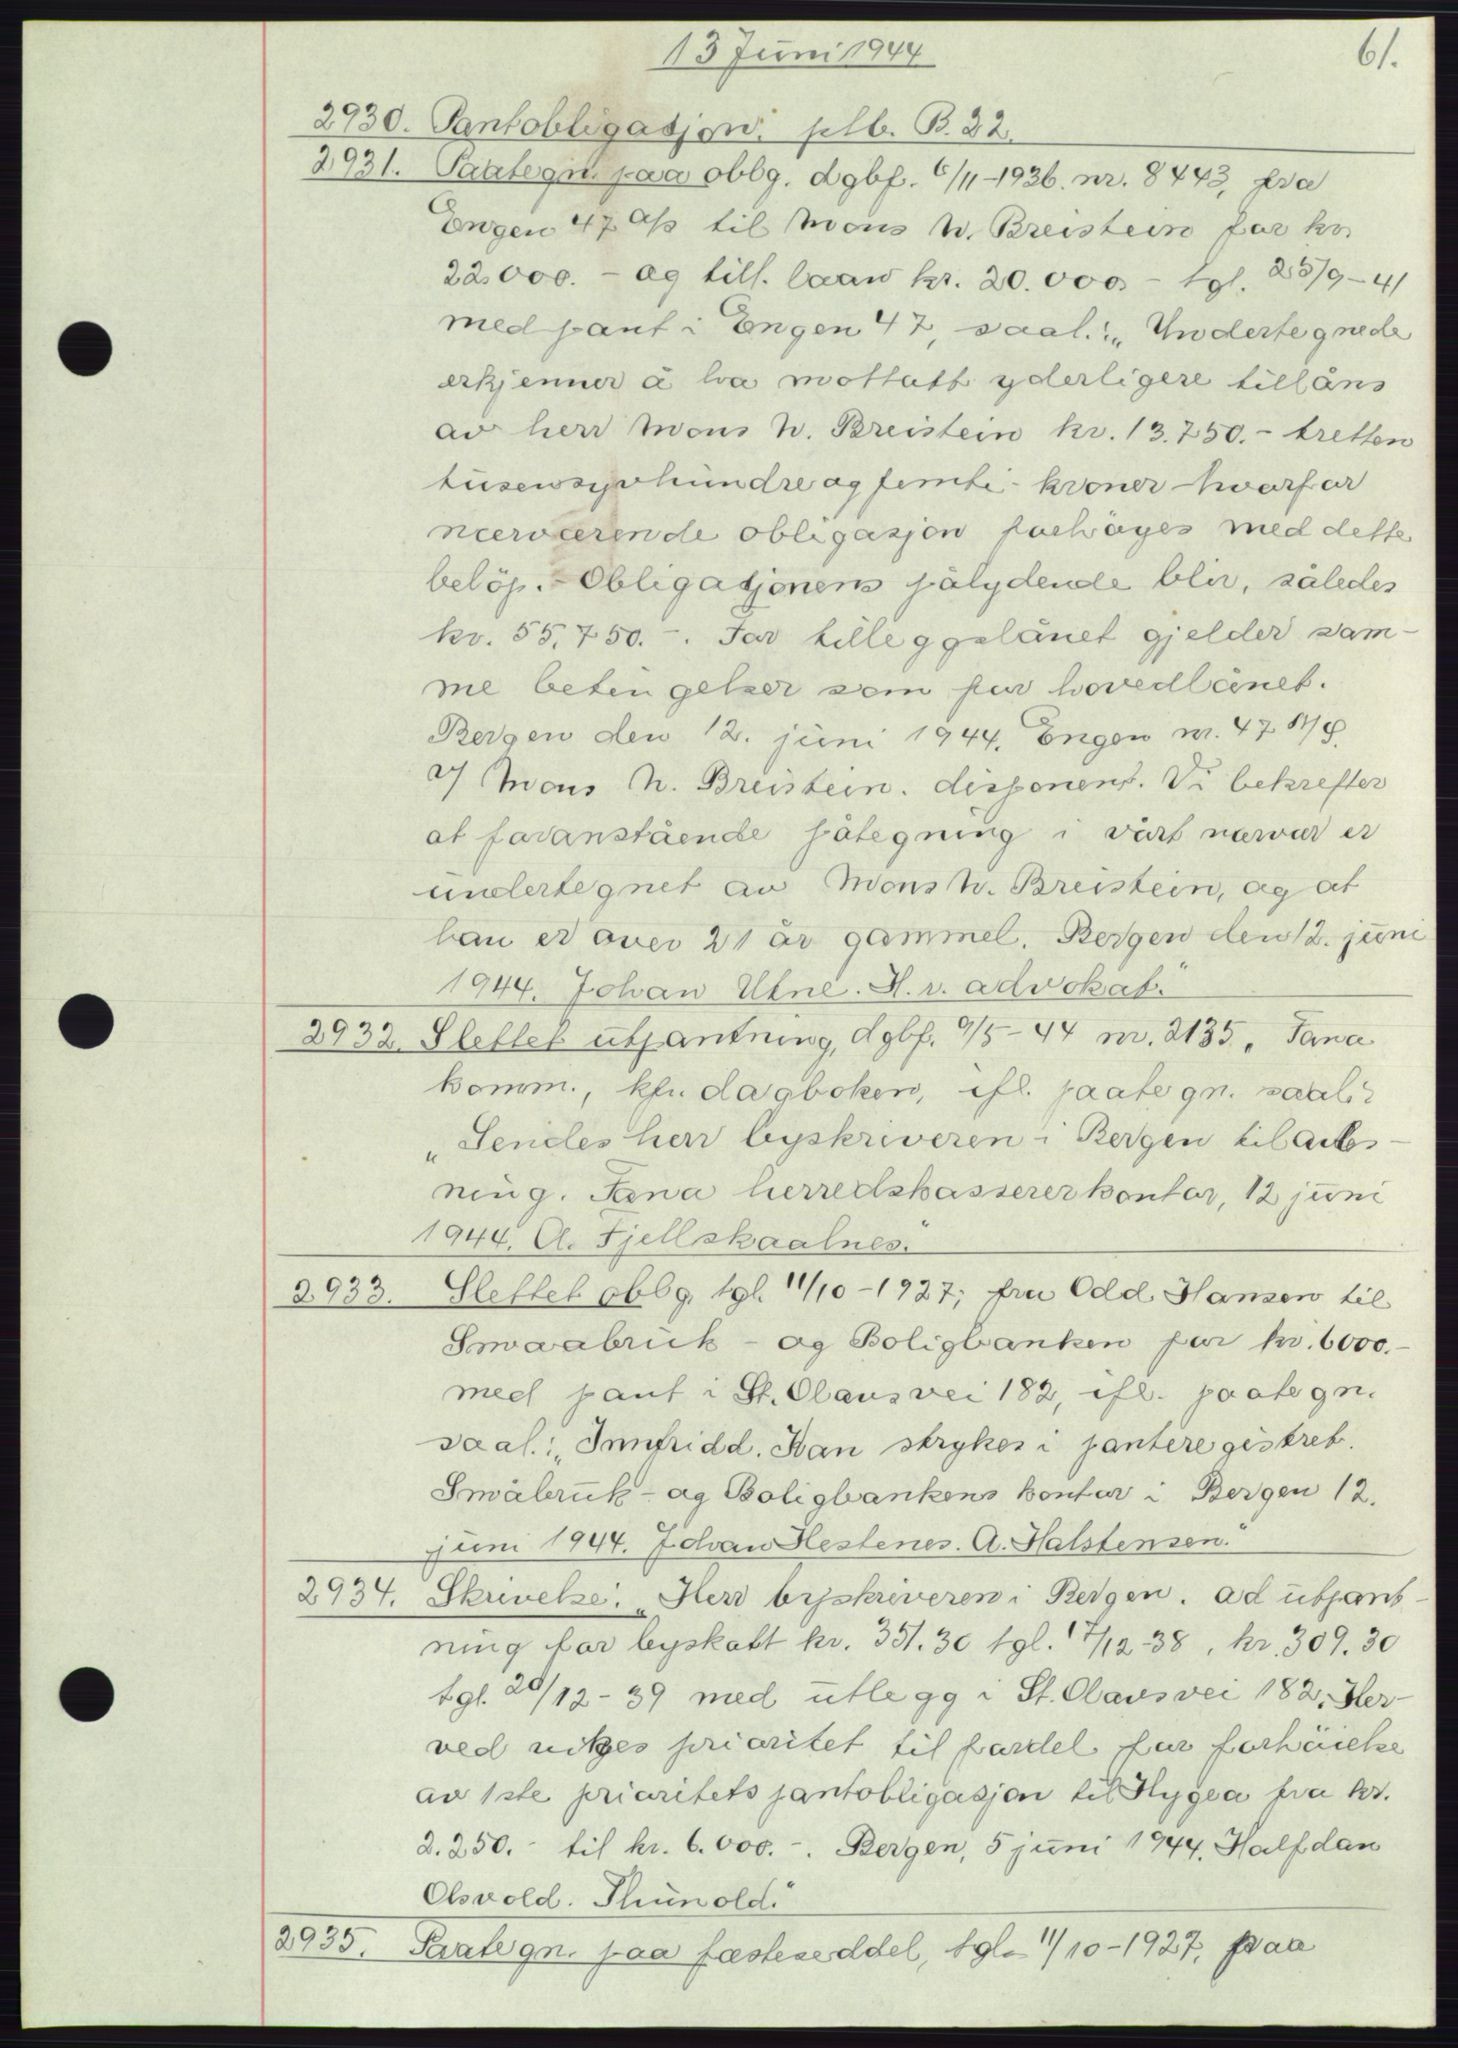 13 Juni 1944
61.
2930. Pantobligasjon: ptb. B. 22.
2931. Paategn. paa oblg. dgbf. 6/11-1936. nr. 8443, fra
Engen 47 A/S til Mons N. Breistein for kr.
22.000.- og till. laan kr. 20.000.- tgl. 25/9-41
med pant i Engen 47, saal.: „Undertegnede
erkjenner å ha mottatt yderligere tillåns
av herr Mons N. Breistein kr. 13.750.- tretten
tusensyvhundreogfemti- kroner - hvorfor
nærværende obligasjon forhöyes med dette
belöp. - Obligasjonens pålydende blir, således
kr. 55.750.-. For tilleggslånet gjelder sam-
me betingelser som for hovedlånet.
Bergen den 12. juni 1944. Engen nr. 47 A/S.
v/ Mons N. Breistein. disponent. Vi bekrefter
at foranstående påtegning i vårt nærvær er
undertegnet av Mons N. Breistein, og at
han er over 21 år gammel. Bergen den 12. juni
1944. Johan Utne. H. r. advokat."
2932. Slettet utpantning, dgbf. 9/5-44 nr. 2135, Fana
komm., kfr. dagboken, ifl. paategn. saal.:
„Sendes herr byskriveren i Bergen til avles-
ning. Fana herredskassererkontor, 12 juni
1944. A. Fjellskaalnes."
2933. Slettet oblg. tgl. 11/10-1927, fra Odd Hansen til
Smaabruk - og Boligbanken for kr. 6000.-
med pant i St. Olavs vei 182, ifl. paategn.
saal.: „Innfridd. Kan strykes i panteregistret.
Småbruk- og Boligbankens kontor i Bergen 12.
juni 1944. Johan Hestenes. A. Halstensen."
2934. Skrivelse: „Herr byskriveren i Bergen. ad utpant-
ning for byskatt kr. 351.30 tgl. 17/12-38, kr. 309.30
tgl. 20/12-39 med utlegg i St. Olavs vei 182. Her-
ved vikes prioritet til fordel for forhöielse
av 1ste prioritets pantobligasjon til Hygea fra kr.
2.250.- til kr. 6.000.-. Bergen, 5 juni 1944. Halfdan
Olsvold. Thunold."
2935. Paategn. paa fæsteseddel, tgl. 11/10-1927, paa